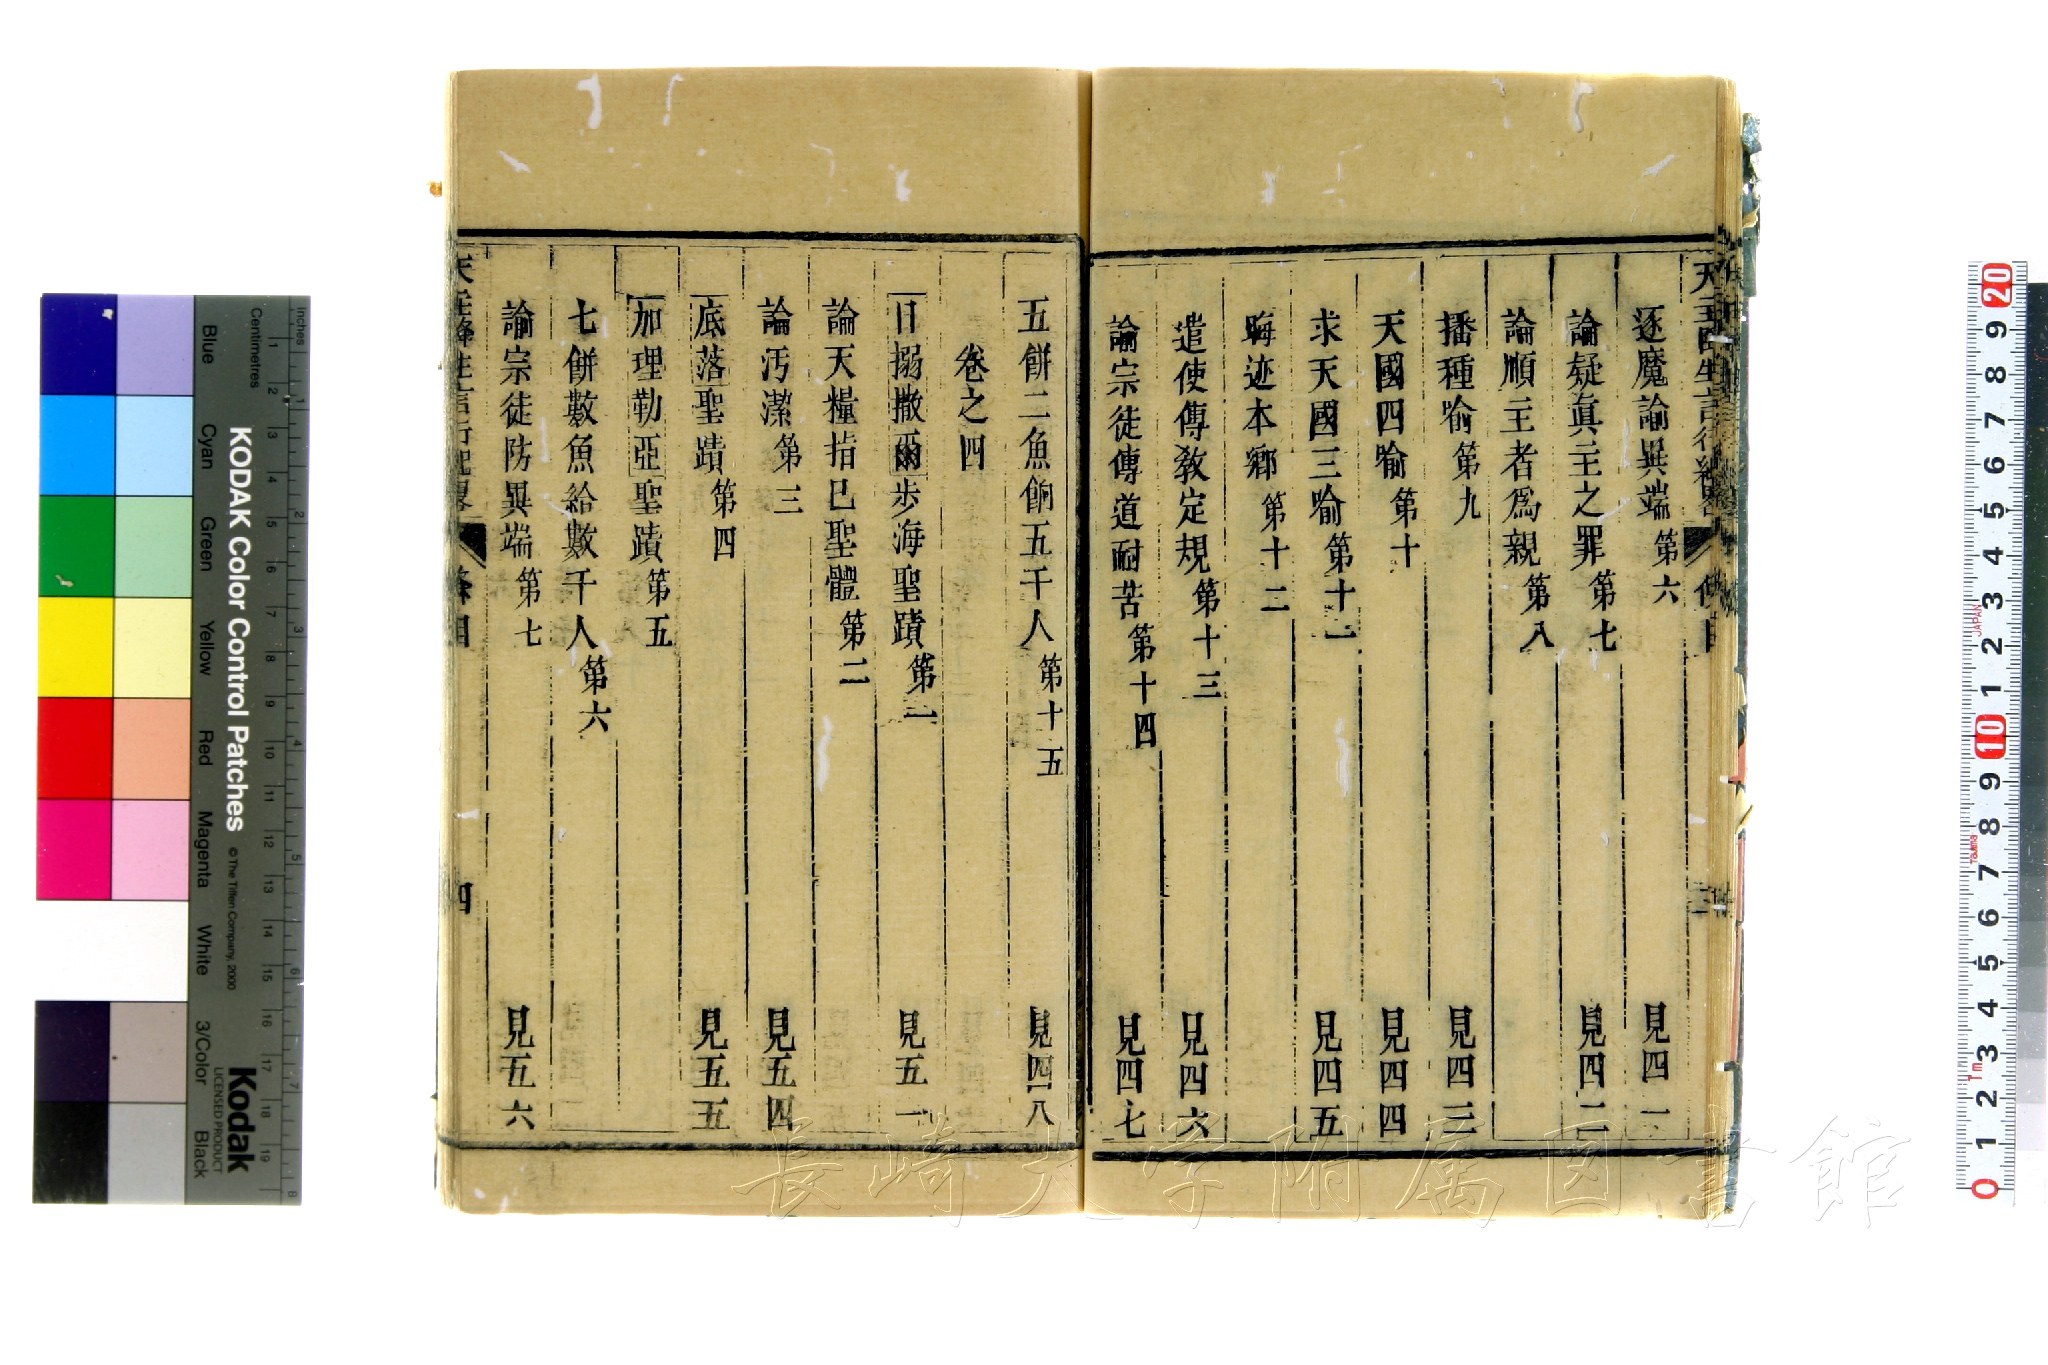 逐魔論異端第六 見四一
論疑眞主之罪第七 見四二
論順主者爲親第八
播種喻第九 見四三
天國四喻第十 見四四
求天國三喻第十一 見四五
晦迹本鄉第十二
遣使傳敎定規第十三 見四六
諭宗徒傳道耐苦第十四 見四七
五餅二魚餉五千人第十五 見四八
卷之四
日搦撒爾步海聖蹟第一 見五一
論天糧指已聖體第二
論汚潔第三 見五四
底落聖蹟第四 見五五
加理勒亞聖蹟第五
七餅數魚給數千人第六
諭宗徒防異端第七 見五六
四
長崎大学附属図書館
KODAK Color Control Patches
© The Tiffen Company, 2000
Kodak
LICENSED PRODUCT
Inches
Centimetres
Blue
Cyan
Green
Yellow
Red
Magenta
White
3/Color
Black
JAPAN
Tajima
1m
20
9
8
7
6
5
4
3
2
1
10
9
8
7
6
5
4
3
2
1
0